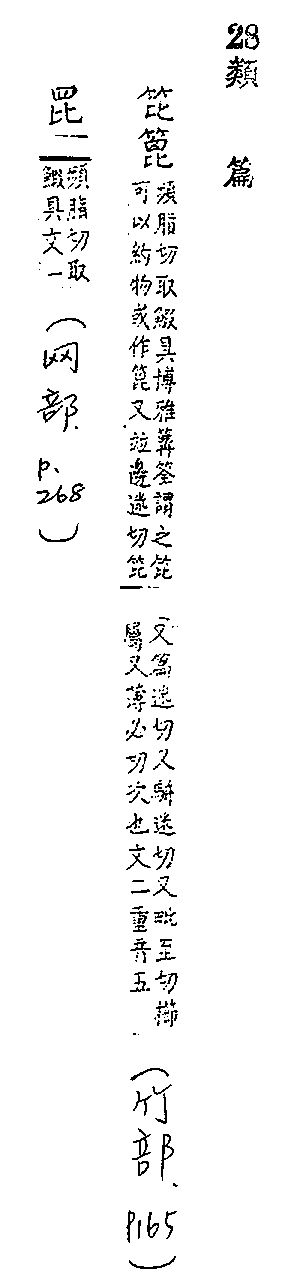 28 類篇
笓篦
頻脂切取鰕具博雅篝筌謂之笓
可以約物或作篦又竝邊迷切笓
又篇迷切又騈迷切又毗至切櫛
屬又薄必切次也文二重音五
(竹部. P165)
𦊁
頻脂切取
鰕具文一
(网部. p. 268)